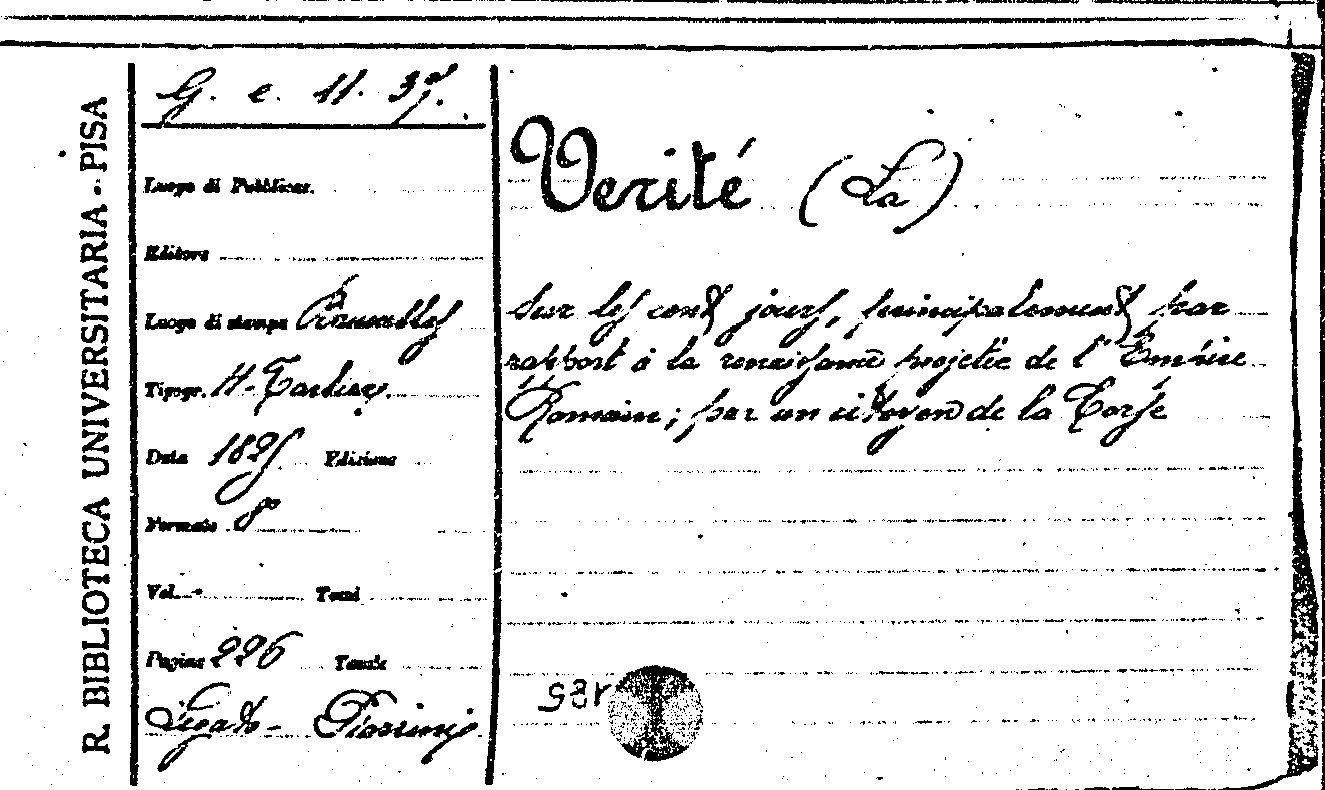 R. BIBLIOTECA UNIVERSITARIA - PISA
G. e. 11. 37.
Luogo di Pubblicaz.
Editore
Luogo di stampa Bruxelles
Tipogr. H. Tarlier.
Data 1825 Edizione
Formato 8°
Vol. - Tomi
Pagine 226 Tavole
Legato - Piossini
Verité (La)
sur les cent jours, principalement par
rapport à la renaissance projetée de l'Empire
Romain; par un citoyen de la Corse